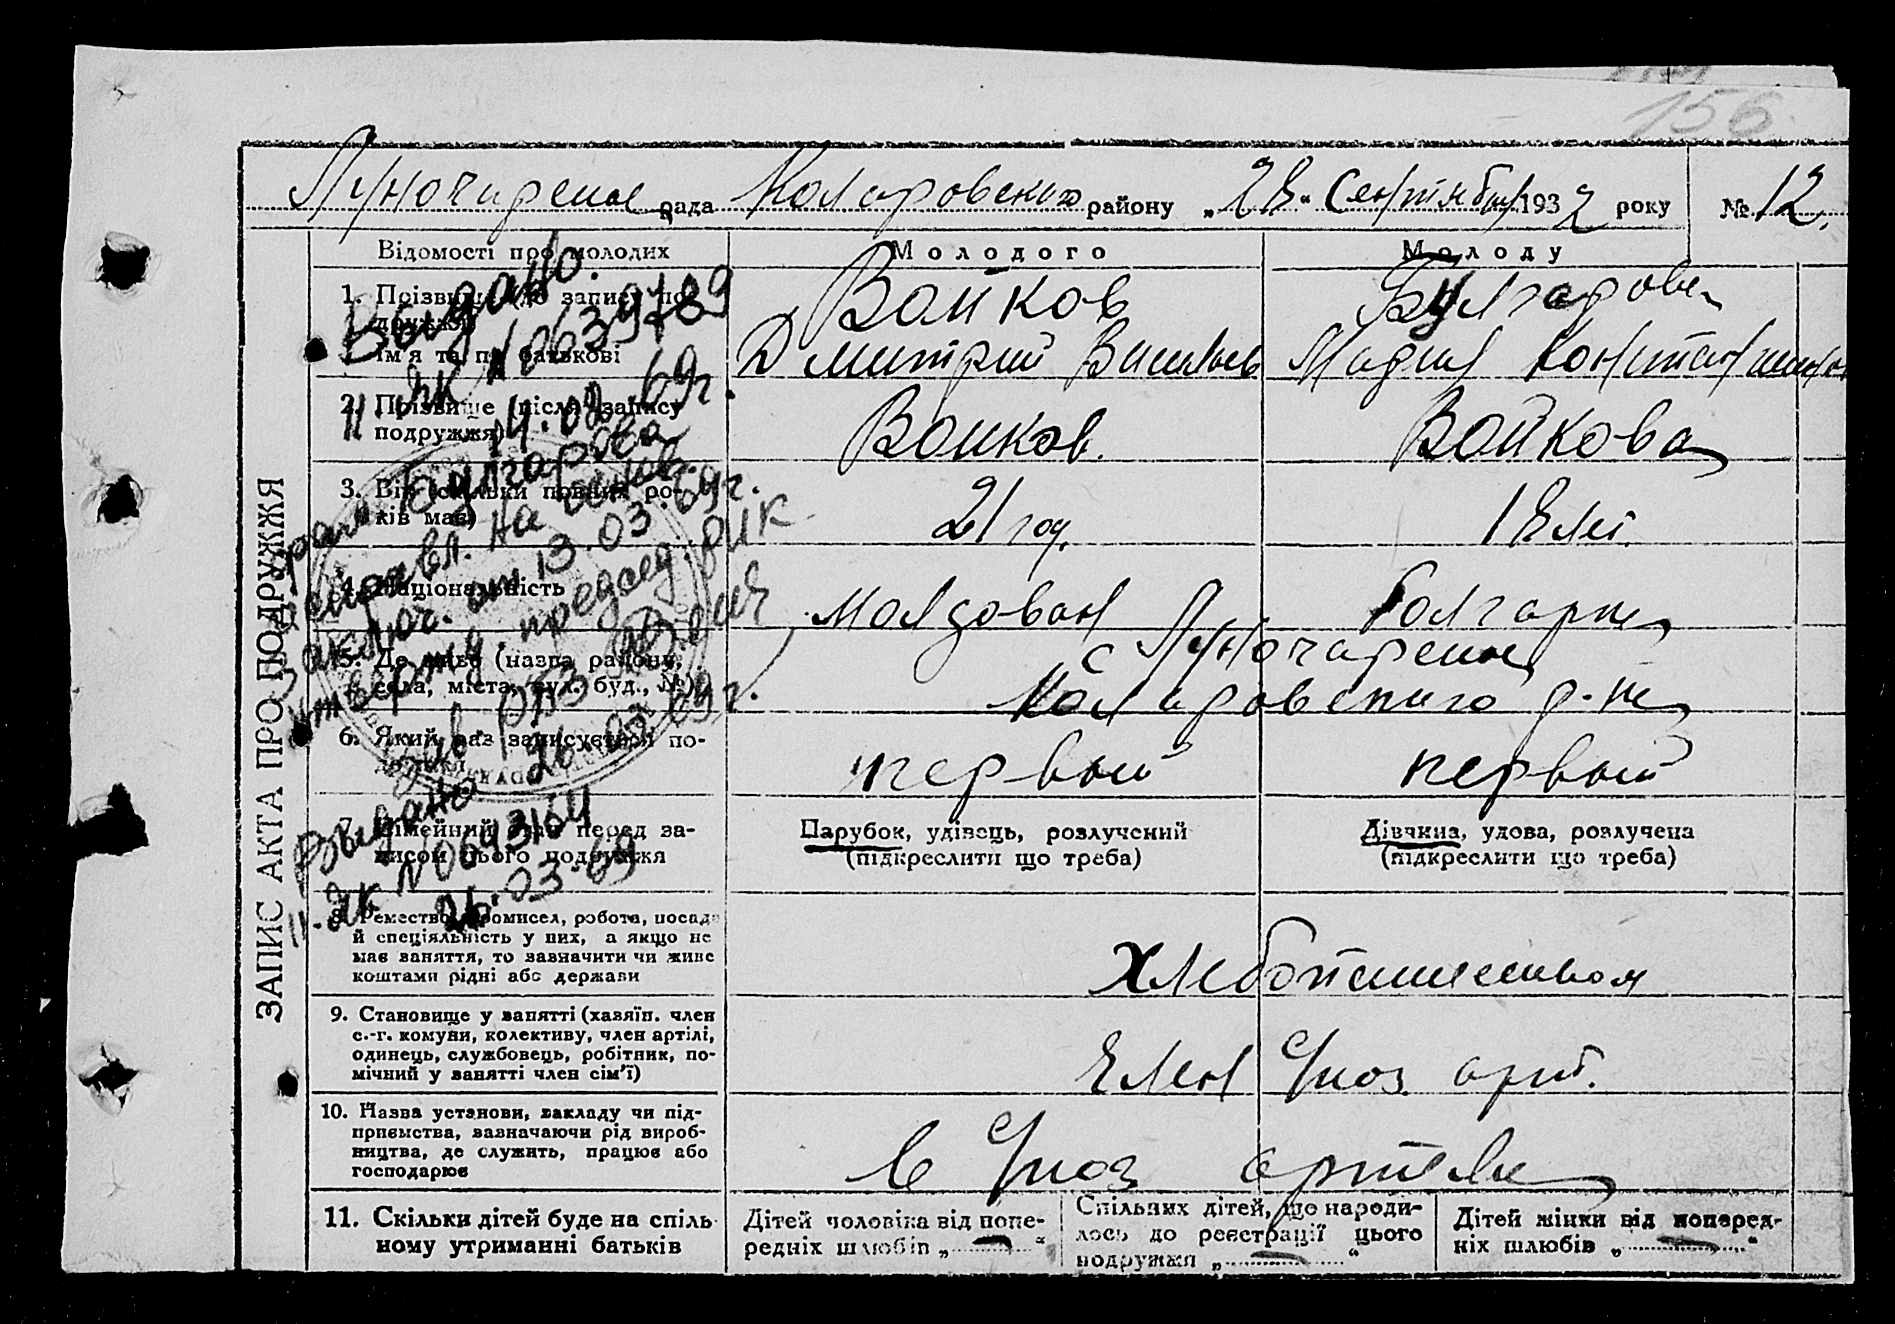 156
Луночарская рада Коларовского району „28“ Сентября 1932 року № 12.
ЗАПИС АКТА ПРО ПОДРУЖЖЯ
Відомості про молодих
Молодого
Молоду
1. Прізвище (до запису подружжя)
Войков
Булгарова
Ім'я та по батькові
Дмитрий Васильев
Мария Константинов
2. Прізвище (після запису подружжя)
Воиков.
Войкова
3. Вік (скільки повних років має)
21 год.
18 лет.
4. Національність
молдован
болгарка
5. Де живе (назва району, села, міста, вул. буд., №)
с Луночарское
Коларовского р-на
6. Який раз записується подружжя
первый
первый
7. Сімейний стан перед записом цього подружжя
Парубок, удівець, розлучений
(підкреслити що треба)
Дівчина, удова, розлучена
(підкреслити що треба)
8. Ремество, промисел, робота, посада
й спеціяльність у них, а якщо не
має заняття, то зазначити чи живе
коштами рідні або держави
Хлебопашеством
9. Становище у занятті (хазяїн. член
с.-г. комуни, колективу, член артілі,
одинець, службовець, робітник, по-
мічний у занятті член сім'ї)
Член с/хоз арт.
10. Назва установи, закладу чи під-
приємства, зазначаючи рід вироб-
ництва, де служить, працює або
господарює
в с/хоз артели
11. Скільки дітей буде на спіль-
ному утриманні батьків
Дітей чоловіка від попе-
редніх шлюбів „ — “
Спільних дітей, що народи-
лось до реєстрації цього
подружжя „ — “
Дітей жінки від поперед-
ніх шлюбів „ — “
Видано.
II ЯК №0639789
14.02.69г.
Булгарова
исправл. на основ.
заключ. от 13.03.69г.
утвержд. председ. РИК
26.03.69г.
Выдано
II-ЯК №0643164
26.03.69